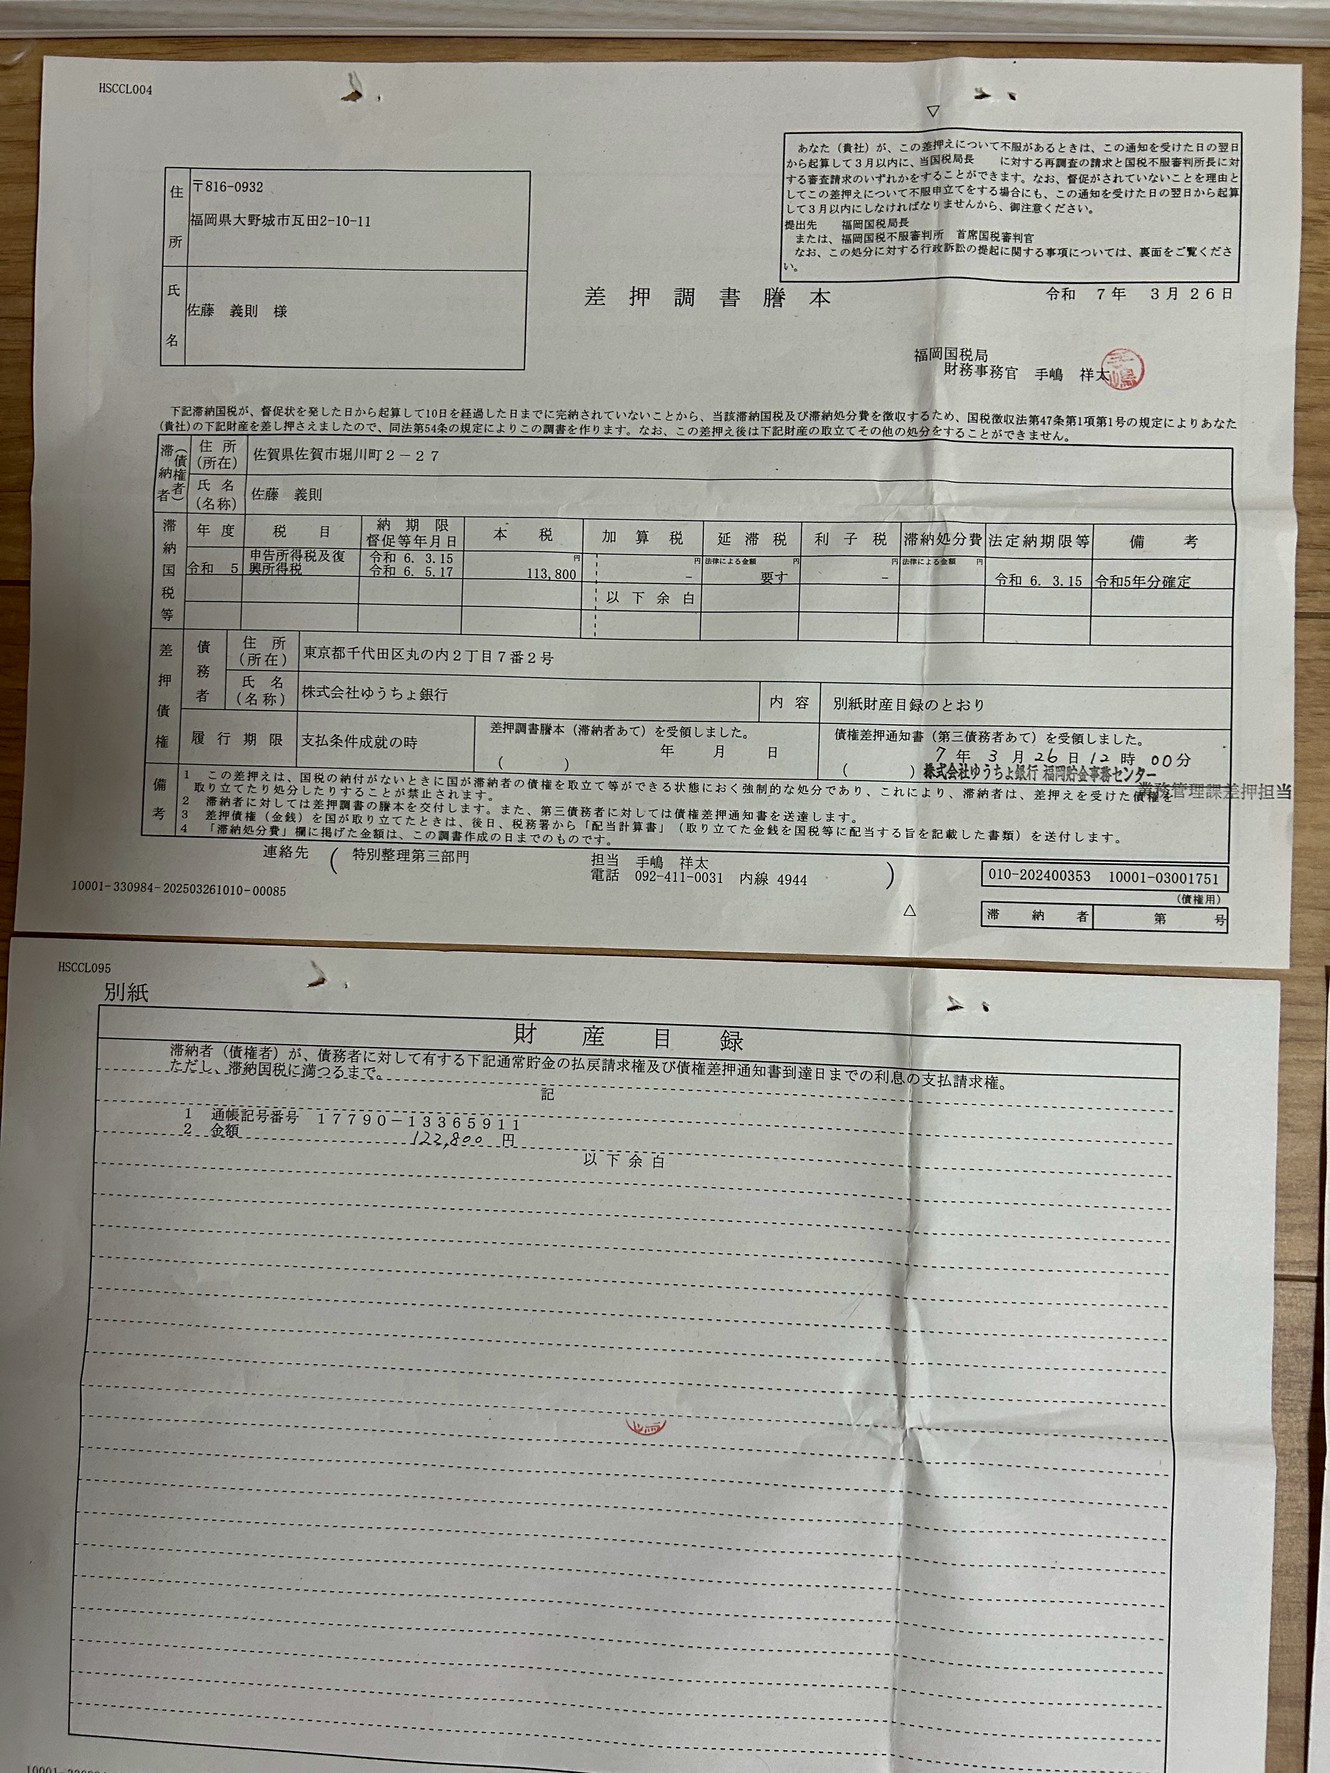 HSCCL004
▽
あなた（貴社）が、この差押えについて不服があるときは、この通知を受けた日の翌日
から起算して3月以内に、当国税局長　　に対する再調査の請求と国税不服審判所長に対
する審査請求のいずれかをすることができます。なお、督促がされていないことを理由と
してこの差押えについて不服申立てをする場合にも、この通知を受けた日の翌日から起算
して3月以内にしなければなりませんから、御注意ください。
提出先　　福岡国税局長
または、福岡国税不服審判所　首席国税審判官
なお、この処分に対する行政訴訟の提起に関する事項については、裏面をご覧くださ
い。
住所
〒816-0932
福岡県大野城市瓦田2-10-11
氏名
佐藤　義則　様
差押調書謄本
令和　7年　3月26日
福岡国税局
財務事務官　手嶋　祥太
下記滞納国税が、督促状を発した日から起算して10日を経過した日までに完納されていないことから、当該滞納国税及び滞納処分費を徴収するため、国税徴収法第47条第1項第1号の規定によりあなた
(貴社)の下記財産を差し押さえましたので、同法第54条の規定によりこの調書を作ります。なお、この差押え後は下記財産の取立てその他の処分をすることができません。
滞納者（債権者）
住所（所在）　佐賀県佐賀市堀川町2－27
氏名（名称）　佐藤　義則
滞納国税等
年度　税目　納期限　督促等年月日　本税　加算税　延滞税　利子税　滞納処分費　法定納期限等　備考
円　円　法律による金額　円　円　法律による金額　円
申告所得税及復　令和 6. 3.15
令和　5　興所得税　令和 6. 5.17　113,800　－　要す　－　令和 6. 3.15　令和5年分確定
以下余白
差押債権
債務者
住所（所在）　東京都千代田区丸の内2丁目7番2号
氏名（名称）　株式会社ゆうちょ銀行　内容　別紙財産目録のとおり
履行期限　支払条件成就の時
差押調書謄本（滞納者あて）を受領しました。
年　月　日
（　　　）
債権差押通知書（第三債務者あて）を受領しました。
7年3月26日12時00分
（　　　）
株式会社ゆうちょ銀行 福岡貯金事務センター
業務管理課差押担当
備考
1　この差押えは、国税の納付がないときに国が滞納者の債権を取立て等ができる状態におく強制的な処分であり、これにより、滞納者は、差押えを受けた債権を
取り立てたり処分したりすることが禁止されます。
2　滞納者に対しては差押調書の謄本を交付します。また、第三債務者に対しては債権差押通知書を送達します。
3　差押債権（金銭）を国が取り立てたときは、後日、税務署から「配当計算書」（取り立てた金銭を国税等に配当する旨を記載した書類）を送付します。
4　「滞納処分費」欄に掲げた金額は、この調書作成の日までのものです。
連絡先　（特別整理第三部門　担当　手嶋　祥太
電話　092-411-0031　内線 4944　）
010-202400353　10001-03001751
10001-330984-202503261010-00085
（債権用）
△
滞納者　第　号
HSCCL095
別紙
財産目録
滞納者（債権者）が、債務者に対して有する下記通常貯金の払戻請求権及び債権差押通知書到達日までの利息の支払請求権。
ただし、滞納国税に満つるまで。
記
1　通帳記号番号　17790－13365911
2　金額　122,800　円
以下余白